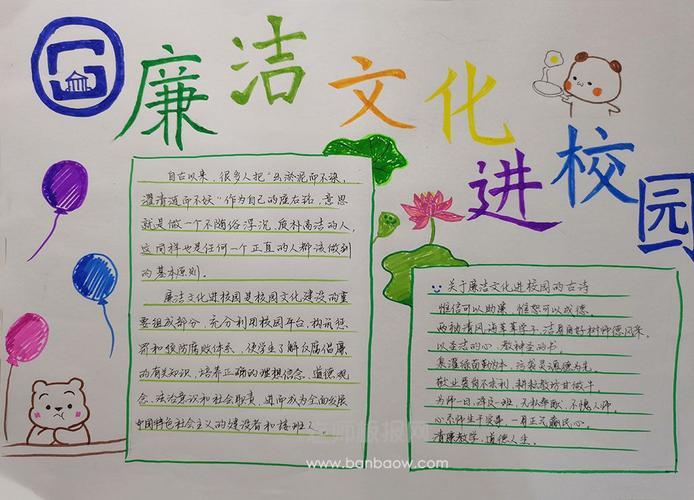 廉洁文化进校园
自古以来，很多人把"出淤泥而不染，
濯清涟而不妖"作为自己的座右铭，意思
就是做一个不随俗浮沉、质朴高洁的人，
这同样也是任何一个正直的人都该做到
的基本原则。
廉洁文化进校园是校园文化建设的重
要组成部分，充分利用校园平台，构筑惩
罚和预防腐败体系，使学生了解反腐倡廉
的有关知识，培养正确的理想信念、道德观
念、法治意识和社会责，进而成为全面发展
中国特色社会主义的建设者和接班人
关于廉洁文化进校园的古诗
惟俭可以助廉，惟恕可以成德。
两袖清风海育莘学子，洁身自好树师德风来。
以圣洁的心，教神圣的书。
敬业爱岗不求利，耕耘教坊甘做牛。
为师一日，洋洋一班，无私奉献，不愧人师。
一身正气
清廉教学，道德人生。
老师板报网
www.banbaow.com